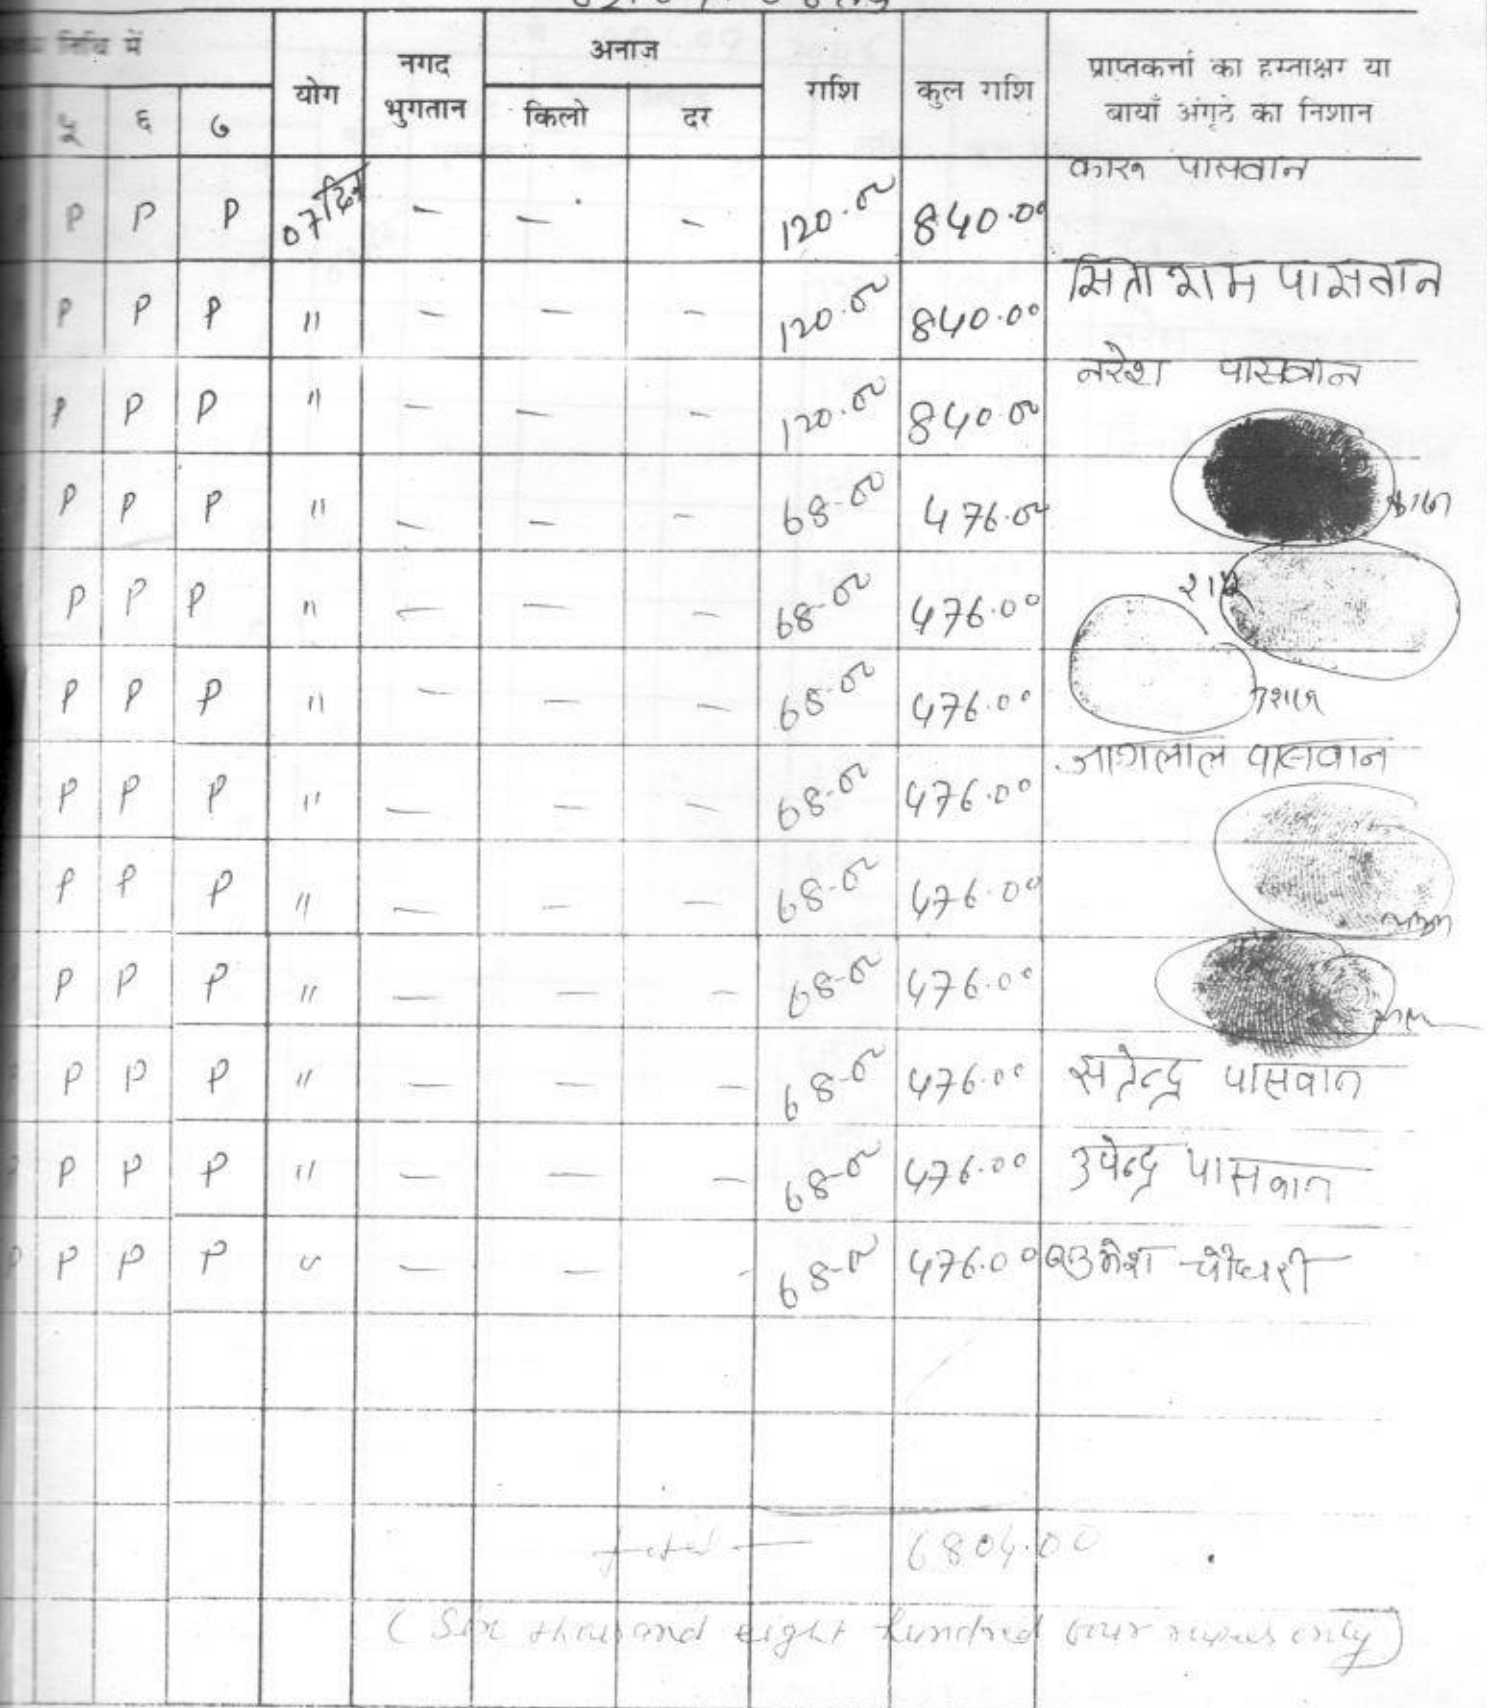 तिथि में योग नगद भुगतान अनाज राशि कुल राशि प्राप्तकर्त्ता का हस्ताक्षर या
५ ६ ७ किलो दर बायाँ अंगूठे का निशान
P P P 07 दिन — — — 120.00 840.00 कारू पासवान
P P P " — — — 120.00 840.00 सिताराम पासवान
P P P " — — — 120.00 840.00 नरेश पासवान
P P P " — — — 68-00 476.00
P P P " — — — 68-00 476.00
P P P " — — — 68-00 476.00
P P P " — — — 68-00 476.00 जागलाल पासवान
P P P " — — — 68-00 476.00
P P P " — — — 68-00 476.00
P P P " — — — 68-00 476.00 सतेन्द्र पासवान
P P P " — — — 68-00 476.00 उपेन्द्र पासवान
P P P " — — - 68-00 476.00 उमेश चौधरी
total — 6804.00
(Six thousand eight hundred four rupees only)